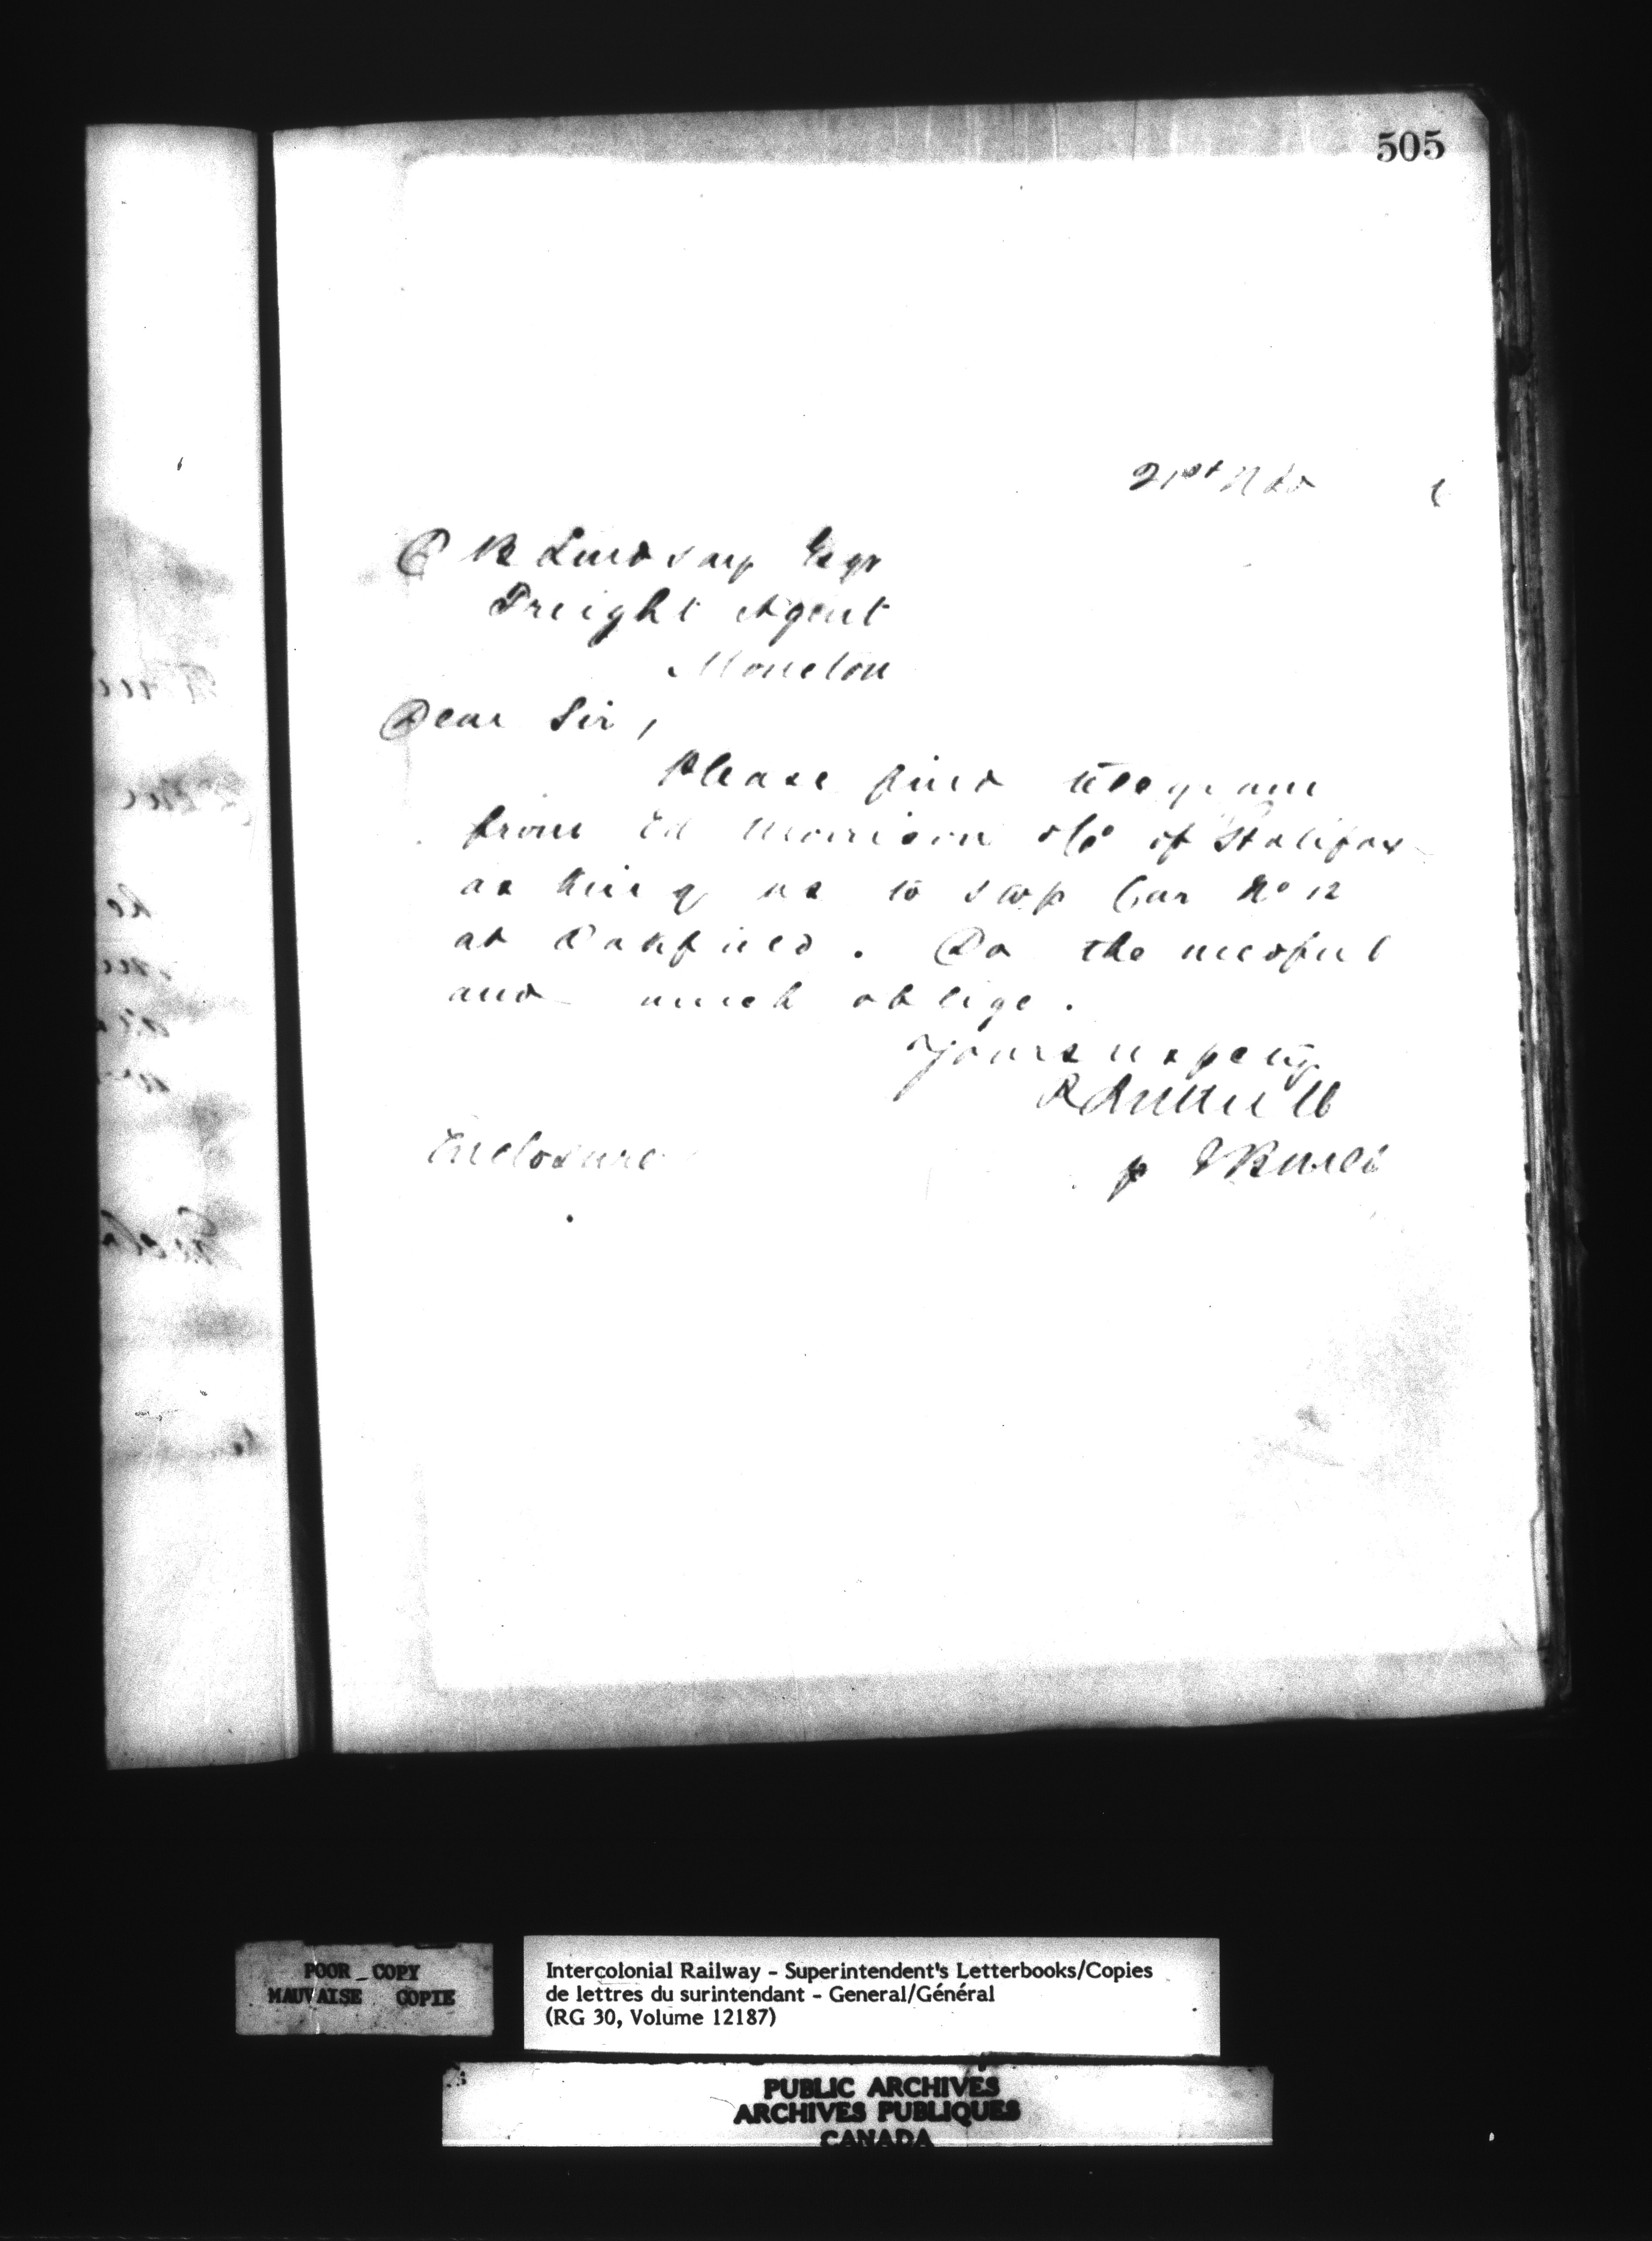 505
21st
B Lindsay Esqr
Freight Agent
Moncton
Dear Sir,
Please find telegram
from Ed Morrison &Co of Halifax
asking us to stop Car No 12
at Oakfield. Do the needful
and much oblige.
Yours respectly
Enclosure
p
POOR COPY
MAUVAISE COPIE
Intercolonial Railway - Superintendent's Letterbooks/Copies
de lettres du surintendant - General/Général
(RG 30, Volume 12187)
PUBLIC ARCHIVES
ARCHIVES PUBLIQUES
CANADA